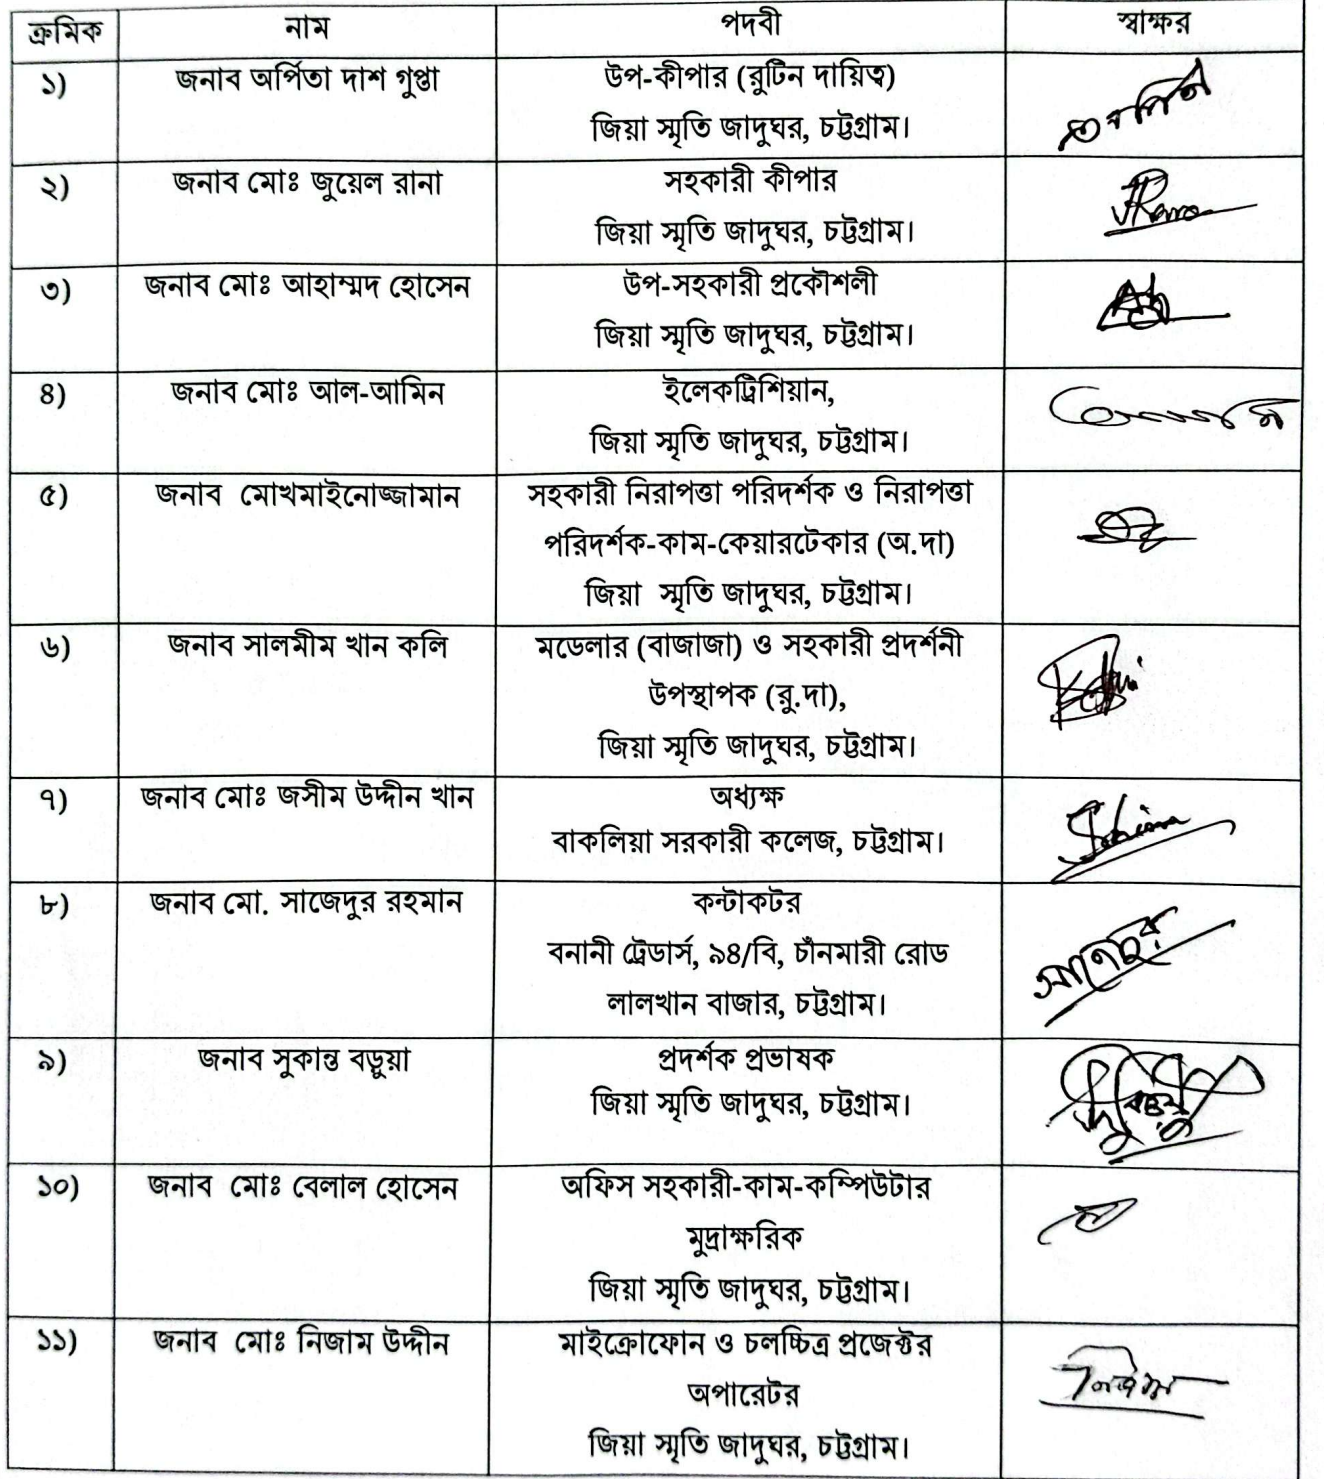 ক্রমিক নাম পদবী স্বাক্ষর
১) জনাব অর্পিতা দাশ গুপ্তা উপ-কীপার (রুটিন দায়িত্ব)
জিয়া স্মৃতি জাদুঘর, চট্টগ্রাম।
২) জনাব মোঃ জুয়েল রানা সহকারী কীপার
জিয়া স্মৃতি জাদুঘর, চট্টগ্রাম।
৩) জনাব মোঃ আহাম্মদ হোসেন উপ-সহকারী প্রকৌশলী
জিয়া স্মৃতি জাদুঘর, চট্টগ্রাম।
৪) জনাব মোঃ আল-আমিন ইলেকট্রিশিয়ান,
জিয়া স্মৃতি জাদুঘর, চট্টগ্রাম।
৫) জনাব মোখমাইনোজ্জামান সহকারী নিরাপত্তা পরিদর্শক ও নিরাপত্তা
পরিদর্শক-কাম-কেয়ারটেকার (অ.দা)
জিয়া স্মৃতি জাদুঘর, চট্টগ্রাম।
৬) জনাব সালমীম খান কলি মডেলার (বাজাজা) ও সহকারী প্রদর্শনী
উপস্থাপক (রু.দা),
জিয়া স্মৃতি জাদুঘর, চট্টগ্রাম।
৭) জনাব মোঃ জসীম উদ্দীন খান অধ্যক্ষ
বাকলিয়া সরকারী কলেজ, চট্টগ্রাম।
৮) জনাব মো. সাজেদুর রহমান কন্টাকটর
বনানী ট্রেডার্স, ৯৪/বি, চাঁনমারী রোড
লালখান বাজার, চট্টগ্রাম।
৯) জনাব সুকান্ত বড়ুয়া প্রদর্শক প্রভাষক
জিয়া স্মৃতি জাদুঘর, চট্টগ্রাম।
১০) জনাব মোঃ বেলাল হোসেন অফিস সহকারী-কাম-কম্পিউটার
মুদ্রাক্ষরিক
জিয়া স্মৃতি জাদুঘর, চট্টগ্রাম।
১১) জনাব মোঃ নিজাম উদ্দীন মাইক্রোফোন ও চলচ্চিত্র প্রজেক্টর
অপারেটর
জিয়া স্মৃতি জাদুঘর, চট্টগ্রাম।